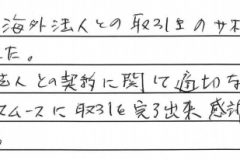 海外法人との取引上のサポ
た。
法人との契約に関して適切な
スムースに取引も完了出来感謝
。